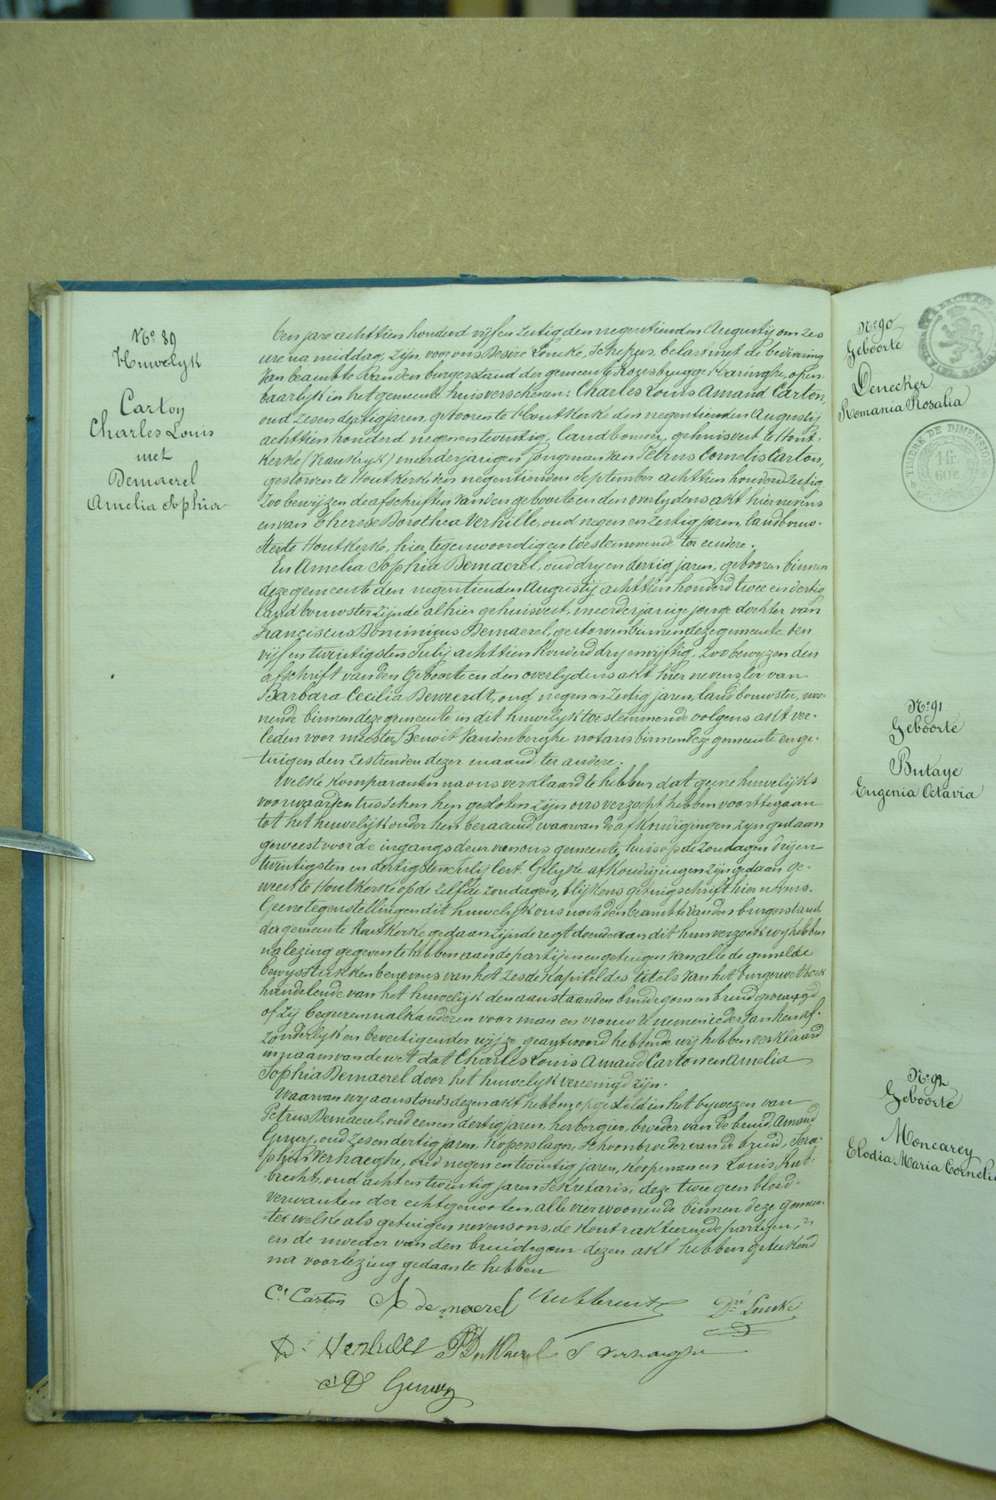 N° 89
Huwelyk
Carton
Charles Louis
met
Demaerel
Amelia Sophia
Ten jare achttien honderd vyf en zestig den negentienden Augusty om zes
ure na middag, zyn voor ons Desiré Lencke, Schepen belast met de bediening
van beambte van den burgerstand der gemeente Rozebrugge Haringhe, open-
baarlyk in het gemeente huis verschenen: Charles Louis Amand Carton,
oud zes en dertig jaren, geboren te Houtkerke den negentienden Augusty
achttien honderd negen en twintig, landbouwer, gehuisvest te Hout-
kerke (Frankryk) meerderjarigen jongman van Petrus Cornelis Carton,
gestorven te Houtkerke den negentienden September achttien honderd zestig
zoo bewyzen de afschriften van den geboorte en den overlydens akt hier nevens
en van Therese Dorothea Verhille, oud negen en zestig jaren, landbouw-
ster te Houtkerke, hier tegenwoordig en toestemmende ter eendre.
En Amelia Sophia Demaerel, oud dry en dertig jaren, geboren binnen
deze gemeente den negentienden Augusty achttien honderd twee en dertig
landbouwster zynde alhier gehuisvest, meerderjarige jonge dochter van
Franciscus Dominiqus Demaerel, gestorven binnen deze gemeente den
vyf en twintigsten July achttien honderd dry en vyftig, zoo bewyzen den
afschrift van den geboorte en den overlydens akt hier nevens en van
Barbara Cecilia Dewaerdt, oud negen en zestig jaren, landbouwster, wo-
nende binnen deze gemeente in dit huwelyk toestemmende volgens akt ver-
leden voor meester Benoit Vandenberghe notaris binnen deze gemeente en ge-
tuigen den zestienden dezer maand, ter andere.
Welke komparanten na ons verklaard te hebben dat geene huwelyks
voorwaarden tusschen hen gesloten zyn ons verzocht hebben voort te gaan
tot het huwelyk onder hen beraemd, waarvan de afkondigingen zyn gedaan
geweest voor de ingangsdeur van ons gemeente huis op de zondagen dry en
twintigsten en dertigsten July lest. Gelyke afkondigingen zyn gedaan ge-
weest te Houtkerke op de zelfde zondagen, blykens getuigschrift hier nevens.
Geene tegenstellingen dit huwelyk ons noch den beambte van den burgerstand
der gemeente Houtkerke gedaan zynde regt doende aan dit hun verzoek wy hebben
na lezing gegeven te hebben aan de partyen en getuigen van alle de gemelde
bewysstukken benevens van het zesde kapittel des titels van het burger wetboek
handelende van het huwelyk den aanstaanden bruidegom en bruid gevraegd
of zy begeren malkanderen voor man en vrouw te nemen ieder van hen af-
zonderlyk en bevestigender wyze geantwoord hebbende wy hebben verklaard
in naam van de wet dat Charles Louis Amand Carton en Amelia
Sophia Demaerel door het huwelyk vereenigd zyn.
Waarvan wy aanstonds dezen akt hebben opgesteld in het bywezen van
Petrus Demaerel, oud een en dertig jaren, herbergier, broeder van de bruid, Amand
oud zes en dertig jaren, koperslager, schoonbroeder van de bruid, Sera-
phin Verhaeghe, oud negen en twintig jaren, koopman en Louis
oud acht en twintig jaren sekretaris, deze twee geen bloed-
verwanten der echtgenooten, alle vier woonende binnen deze gemeen-
te welke als getuigen nevens ons, de kontrakteerende partyen,
en de moeder van den bruidegom dezen akt hebben geteekend
na voorlezing gedaan te hebben
Cs Carton AS demaerel Dré Lencke
Dt Verhille PDeMaerel S Verhaeghe
N° 90
Geboorte
Denecker
Romania Rosalia
TIMBRE DE DIMENSION
N° 91
Geboorte
Butaye
Eugenia Octavia
N° 92
Geboorte
Moncarey
Elodia Maria Cornelia